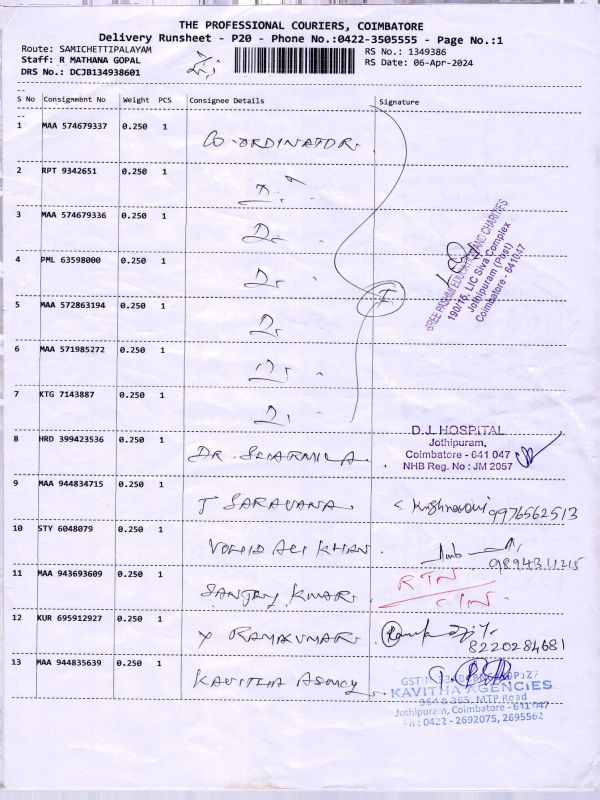 THE PROFESSIONAL COURIERS, COIMBATORE
Delivery Runsheet - P20 - Phone No.:0422-3505555 - Page No.:1
Route: SAMICHETTIPALAYAM
RS No.: 1349386
Staff: R MATHANA GOPAL
RS Date: 06-Apr-2024
DRS No.: DCJB134938601
S No Consignment No Weight PCS Consignee Details Signature
1 MAA 574679337 0.250 1 CO-ORDINATOR.
2 RPT 9342651 0.250 1
3 MAA 574679336 0.250 1
4 PML 63598000 0.250 1
5 MAA 572863194 0.250 1
6 MAA 571985272 0.250 1
7 KTG 7143887 0.250 1
SREE EDUCATION AND CHARITIES
190/16, LIC Siva Complex
Jothipuram (Post)
Coimbatore - 641047
8 HRD 399423536 0.250 1 DR. SHARMILA.
D.J. HOSPITAL
Jothipuram,
Coimbatore - 641 047
NHB Reg. No : JM 2057
9 MAA 944834715 0.250 1 T SARAVANA. 9976562513
10 STY 6048079 0.250 1 VOHID ALI KHAN. 9894311215
11 MAA 943693609 0.250 1 SANJAY KUMAR. RTN
12 KUR 695912927 0.250 1 Y RAMKUMAR. 8220284681
13 MAA 944835639 0.250 1 KAVITHA AGENCY.
KAVITHA AGENCIES
MTP Road
Jothipuram, Coimbatore - 641 047
Ph : 0422 - 2692075, 2695562